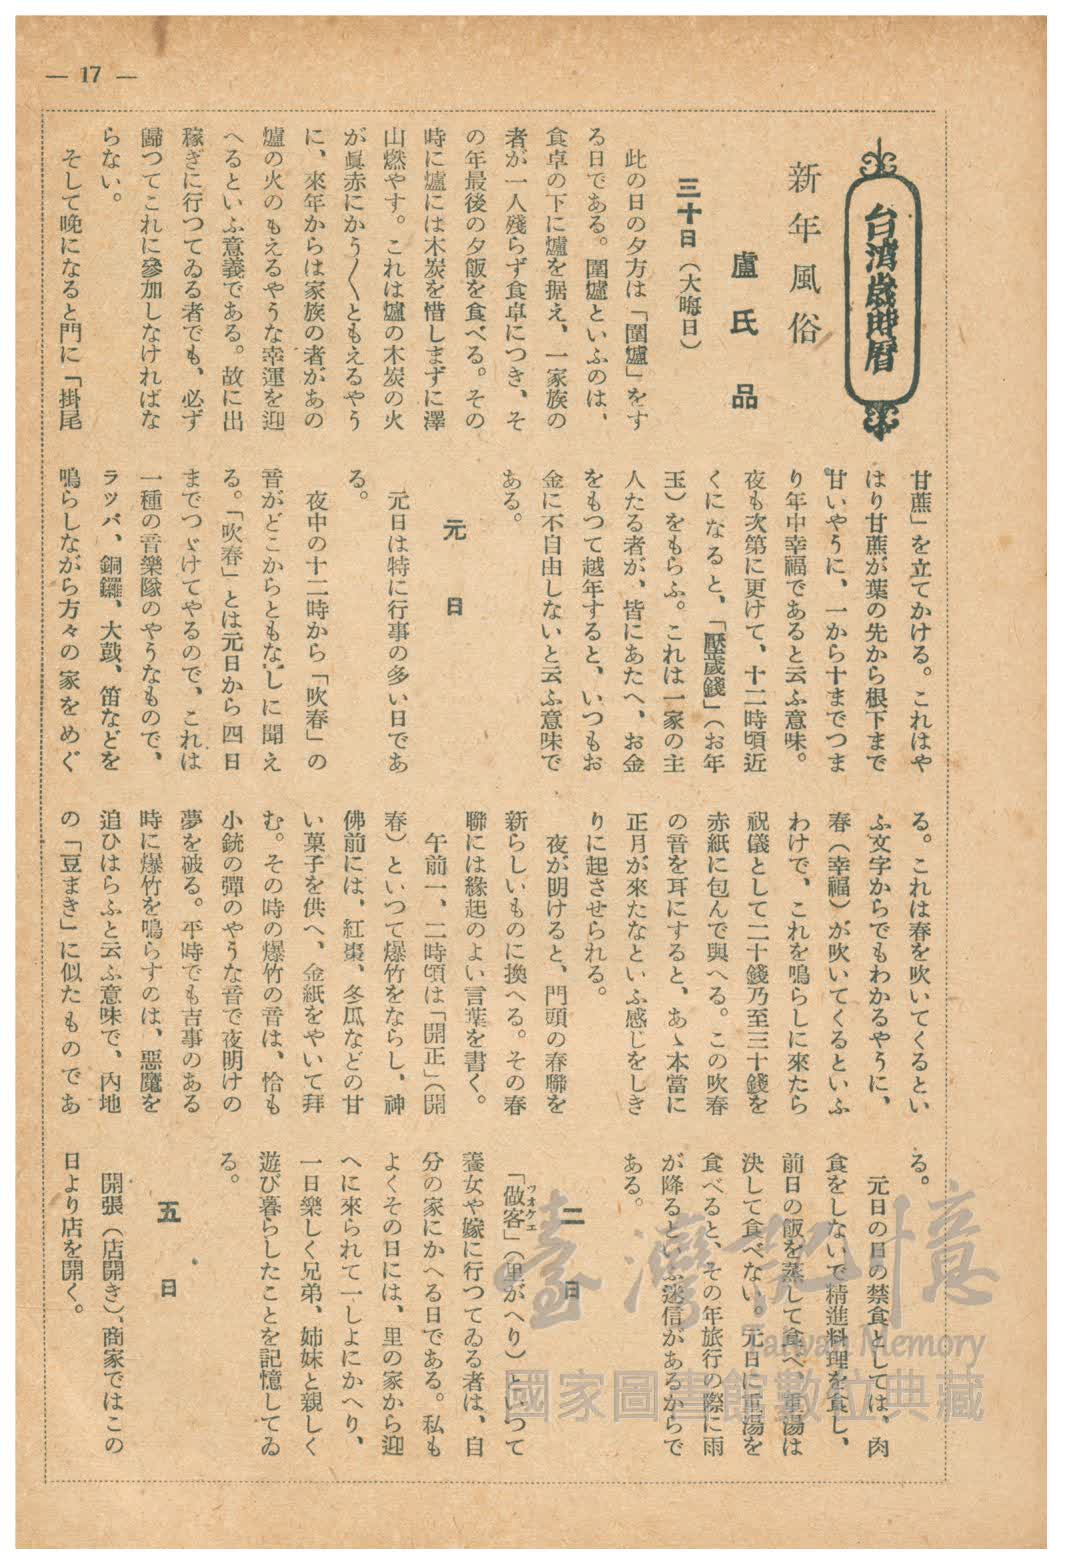 — 17 —
台湾歳時暦
新年風俗
盧氏品
三十日(大晦日)
此の日の夕方は「圍爐」をす
る日である。圍爐といふのは、
食卓の下に爐を据え、一家族の
者が一人殘らず食卓につき、そ
の年最後の夕飯を食べる。その
時に爐には木炭を惜しまずに澤
山燃やす。これは爐の木炭の火
が眞赤にかう〳〵ともえるやう
に、來年からは家族の者があの
爐の火のもえるやうな幸運を迎
へるといふ意義である。故に出
稼ぎに行つてゐる者でも、必ず
歸つてこれに參加しなければな
らない。
そして晩になると門に「掛尾
甘蔗」を立てかける。これはや
はり甘蔗が葉の先から根下まで
甘いやうに、一から十までつま
り年中幸福であると云ふ意味。
夜も次第に更けて、十二時頃近
くになると、「壓歲錢」(お年
玉)をもらふ。これは一家の主
人たる者が、皆にあたへ、お金
をもつて越年すると、いつもお
金に不自由しないと云ふ意味で
ある。
元日
元日は特に行事の多い日であ
る。
夜中の十二時から「吹春」の
音がどこからともなしに聞え
る。「吹春」とは元日から四日
までつゞけてやるので、これは
一種の音樂隊のやうなもので、
ラツパ、銅鑼、大鼓、笛などを
鳴らしながら方々の家をめぐ
る。これは春を吹いてくるとい
ふ文字からでもわかるやうに、
春(幸福)が吹いてくるといふ
わけで、これを鳴らしに來たら
祝儀として二十錢乃至三十錢を
赤紙に包んで與へる。この吹春
の音を耳にすると、あゝ本當に
正月が來たなといふ感じをしき
りに起させられる。
夜が明けると、門頭の春聯を
新らしいものに換へる。その春
聯には緣起のよい言葉を書く。
午前一、二時頃は「開正」(開
春)といつて爆竹をならし、神
佛前には、紅棗、冬瓜などの甘
い菓子を供へ、金紙をやいて拜
む。その時の爆竹の音は、恰も
小銃の彈のやうな音で夜明けの
夢を破る。平時でも吉事のある
時に爆竹を鳴らすのは、惡魔を
追ひはらふと云ふ意味で、内地
の「豆まき」に似たものであ
る。
元日の日の禁食としては、肉
食をしないで精進料理を食し、
前日の飯を蒸して食べ、重湯は
決して食べない。元日に重湯を
食べると、その年旅行の際に雨
が降るといふ迷信があるからで
ある。
二日
「做客」(里がへり)といつて
ツオケエ
養女や嫁に行つてゐる者は、自
分の家にかへる日である。私も
よくその日には、里の家から迎
へに來られて一しよにかへり、
一日樂しく兄弟、姉妹と親しく
遊び暮らしたことを記憶してゐ
る。
五日
開張(店開き)、商家ではこの
日より店を開く。
臺灣記憶
Taiwan Memory
國家圖書館數位典藏